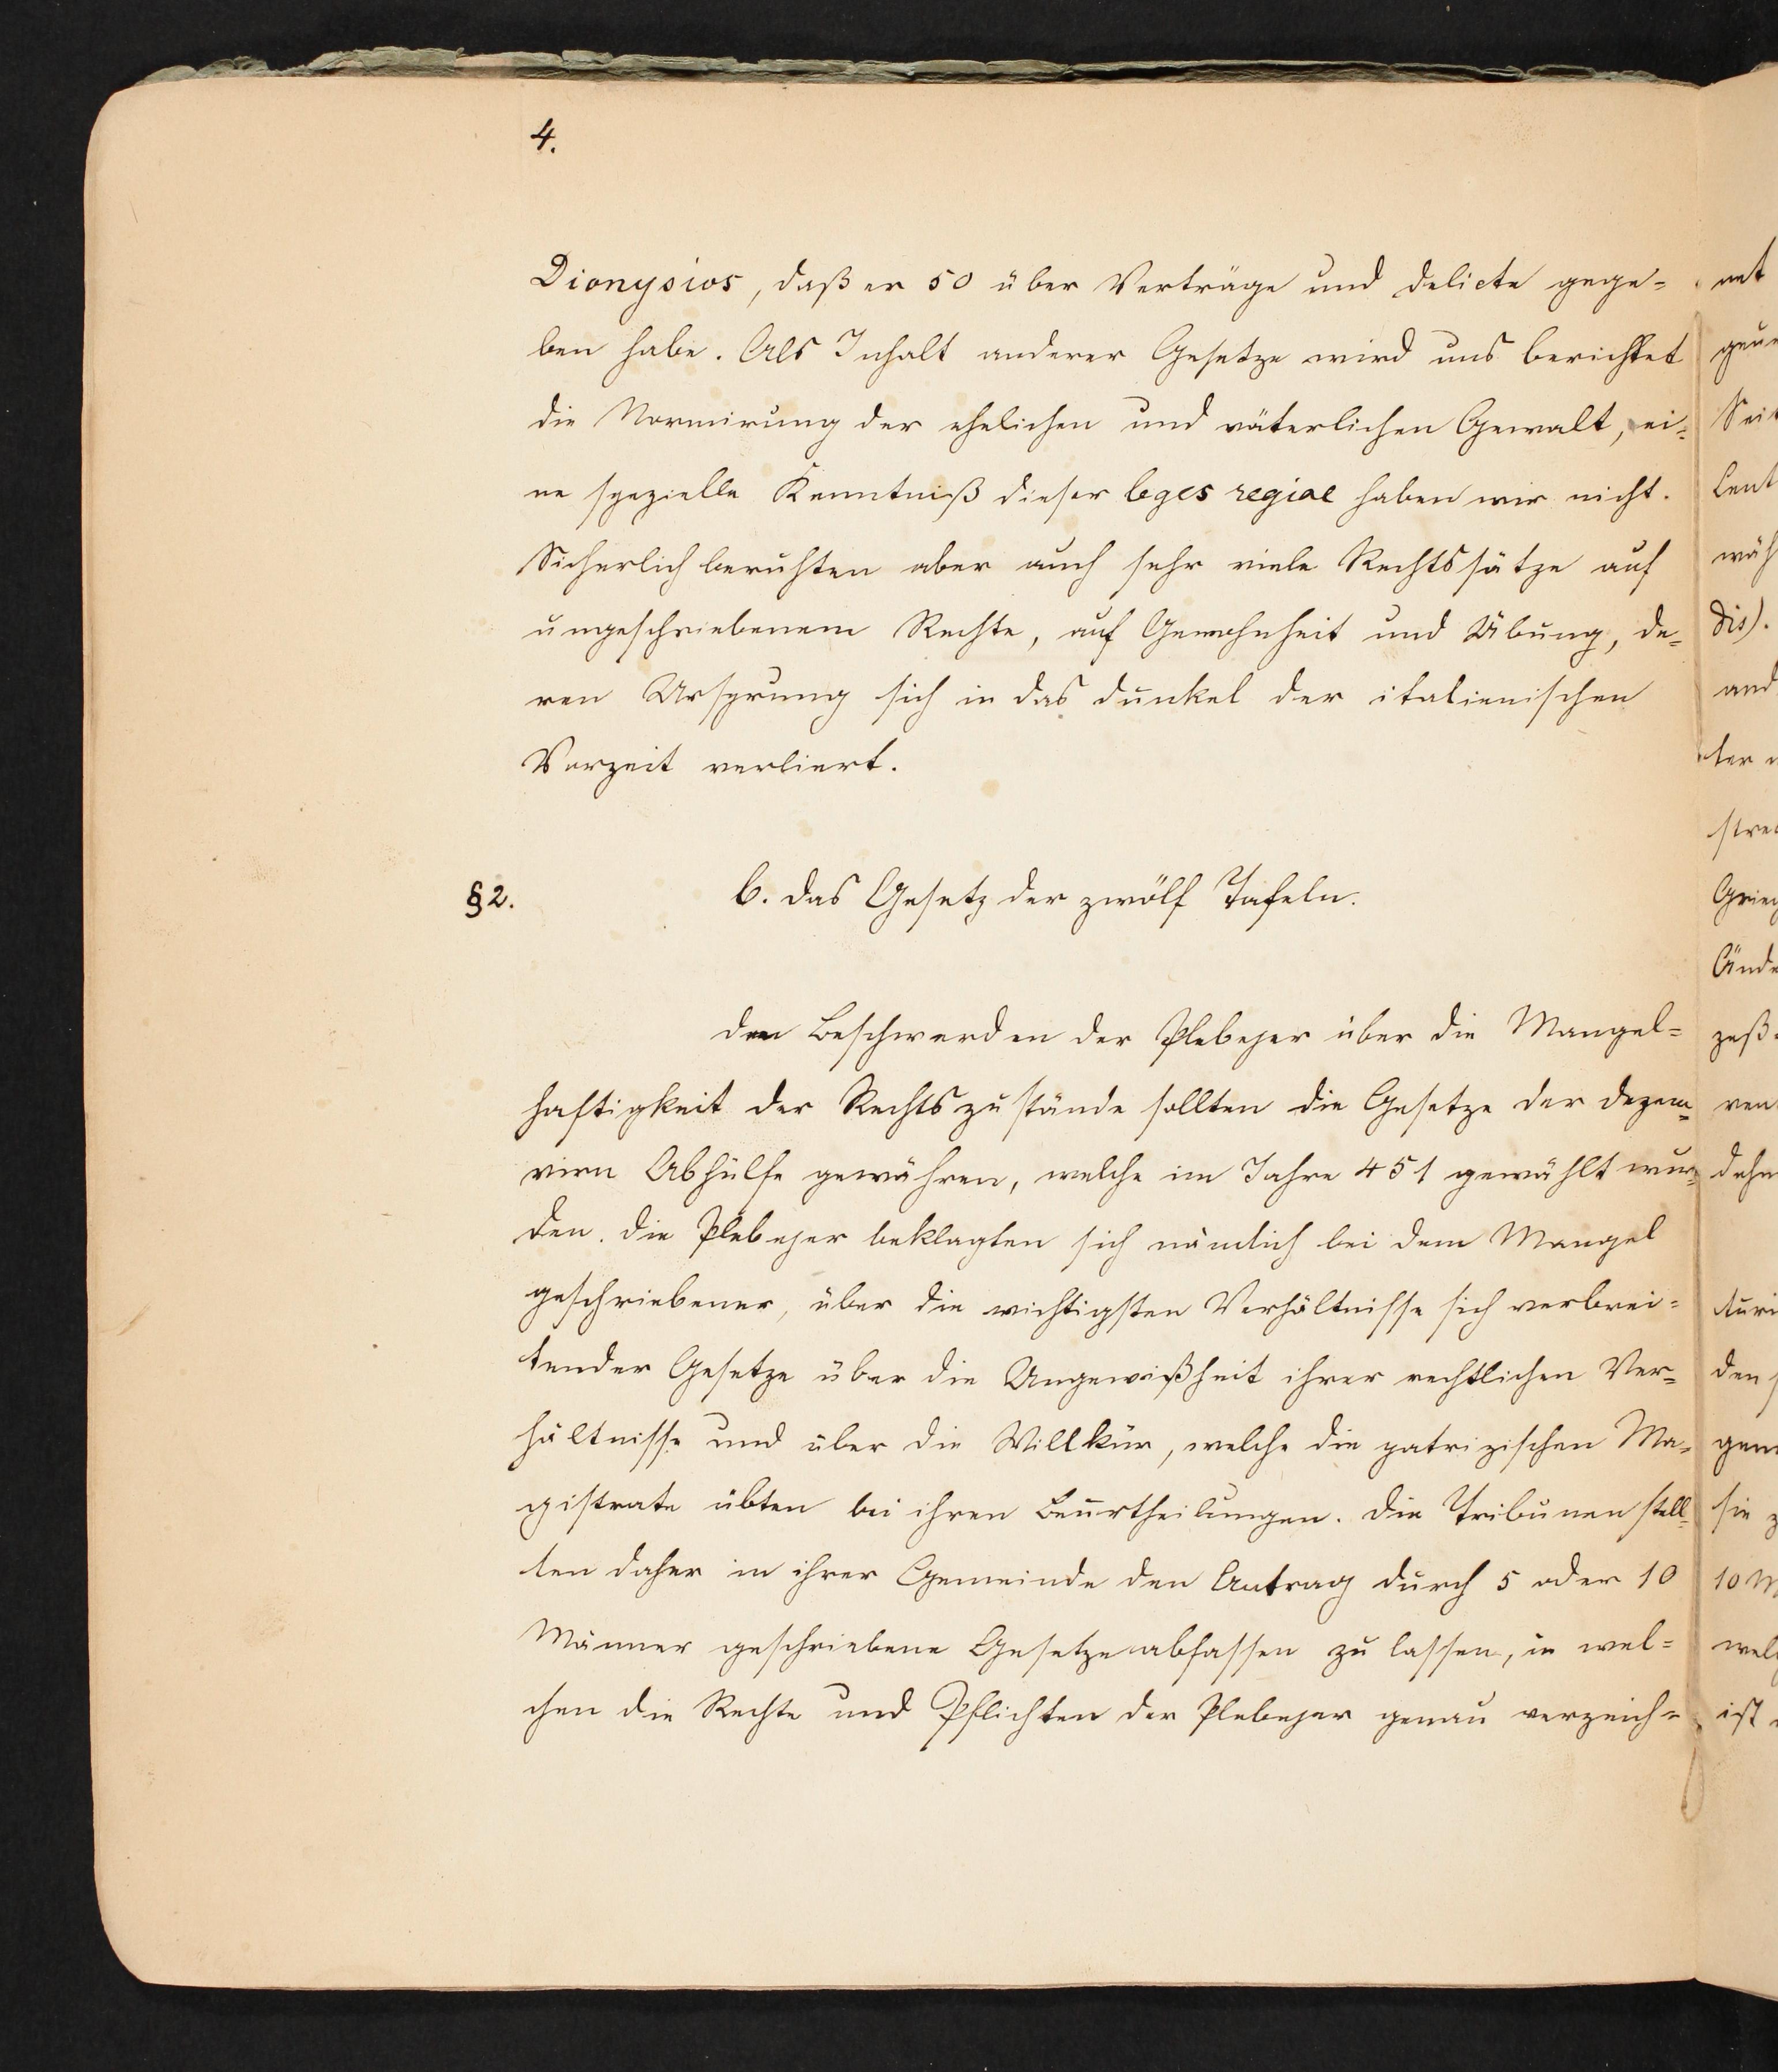 4.
Dionysios, daß er 50 über Verträge und Delicte gege=
ben habe. Als Inhalt anderer Gesetze wird uns berichtet
die Normirung der ehelichen und väterlichen Gewalt, ei=
ne spezielle Kenntniß dieser leges regiae haben wir nicht.
Sicherlich beruhten aber auch sehr viele Rechtssätze auf
ungeschriebenem Rechte, auf Gewohnheit und Übung, de=
ren Ursprung sich in das Dunkel der italienischen
Vorzeit verliert.
§2. b. Das Gesetz der zwölf Tafeln.
Den Beschwerden der Plebejer über die Mangel=
haftigkeit der Rechtszustände sollten die Gesetze der Dezem=
virn Abhülfe gewähren, welche im Jahre 451 gewählt wur=
den. Die Plebejer beklagten sich nämlich bei dem Mangel
geschriebener, über die wichtigsten Verhältnisse sich verbrei=
tender Gesetze über die Ungewißheit ihrer rechtlichen Ver=
hältnisse und über die Willkür, welche die patrizischen Ma=
gistrate übten bei ihren Beurtheilungen. Die Tribunen stell=
ten daher in ihrer Gemeinde den Antrag durch 5 oder 10
Männer geschriebene Gesetze abfassen zu lassen, in wel=
chen die Rechte und Pflichten der Plebejer genau verzeich=